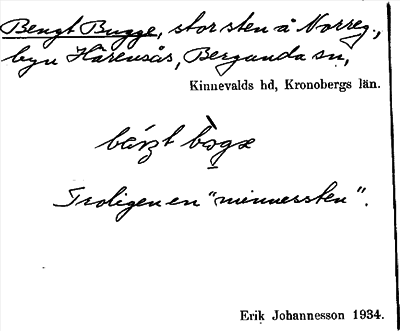 Bengt Bugge, stor sten å Norreg.,
byn Hårensås, Bergunda sn,
Kinnevalds hd, Kronobergs län.
Troligen en "minnessten".
Erik Johannesson 1934.